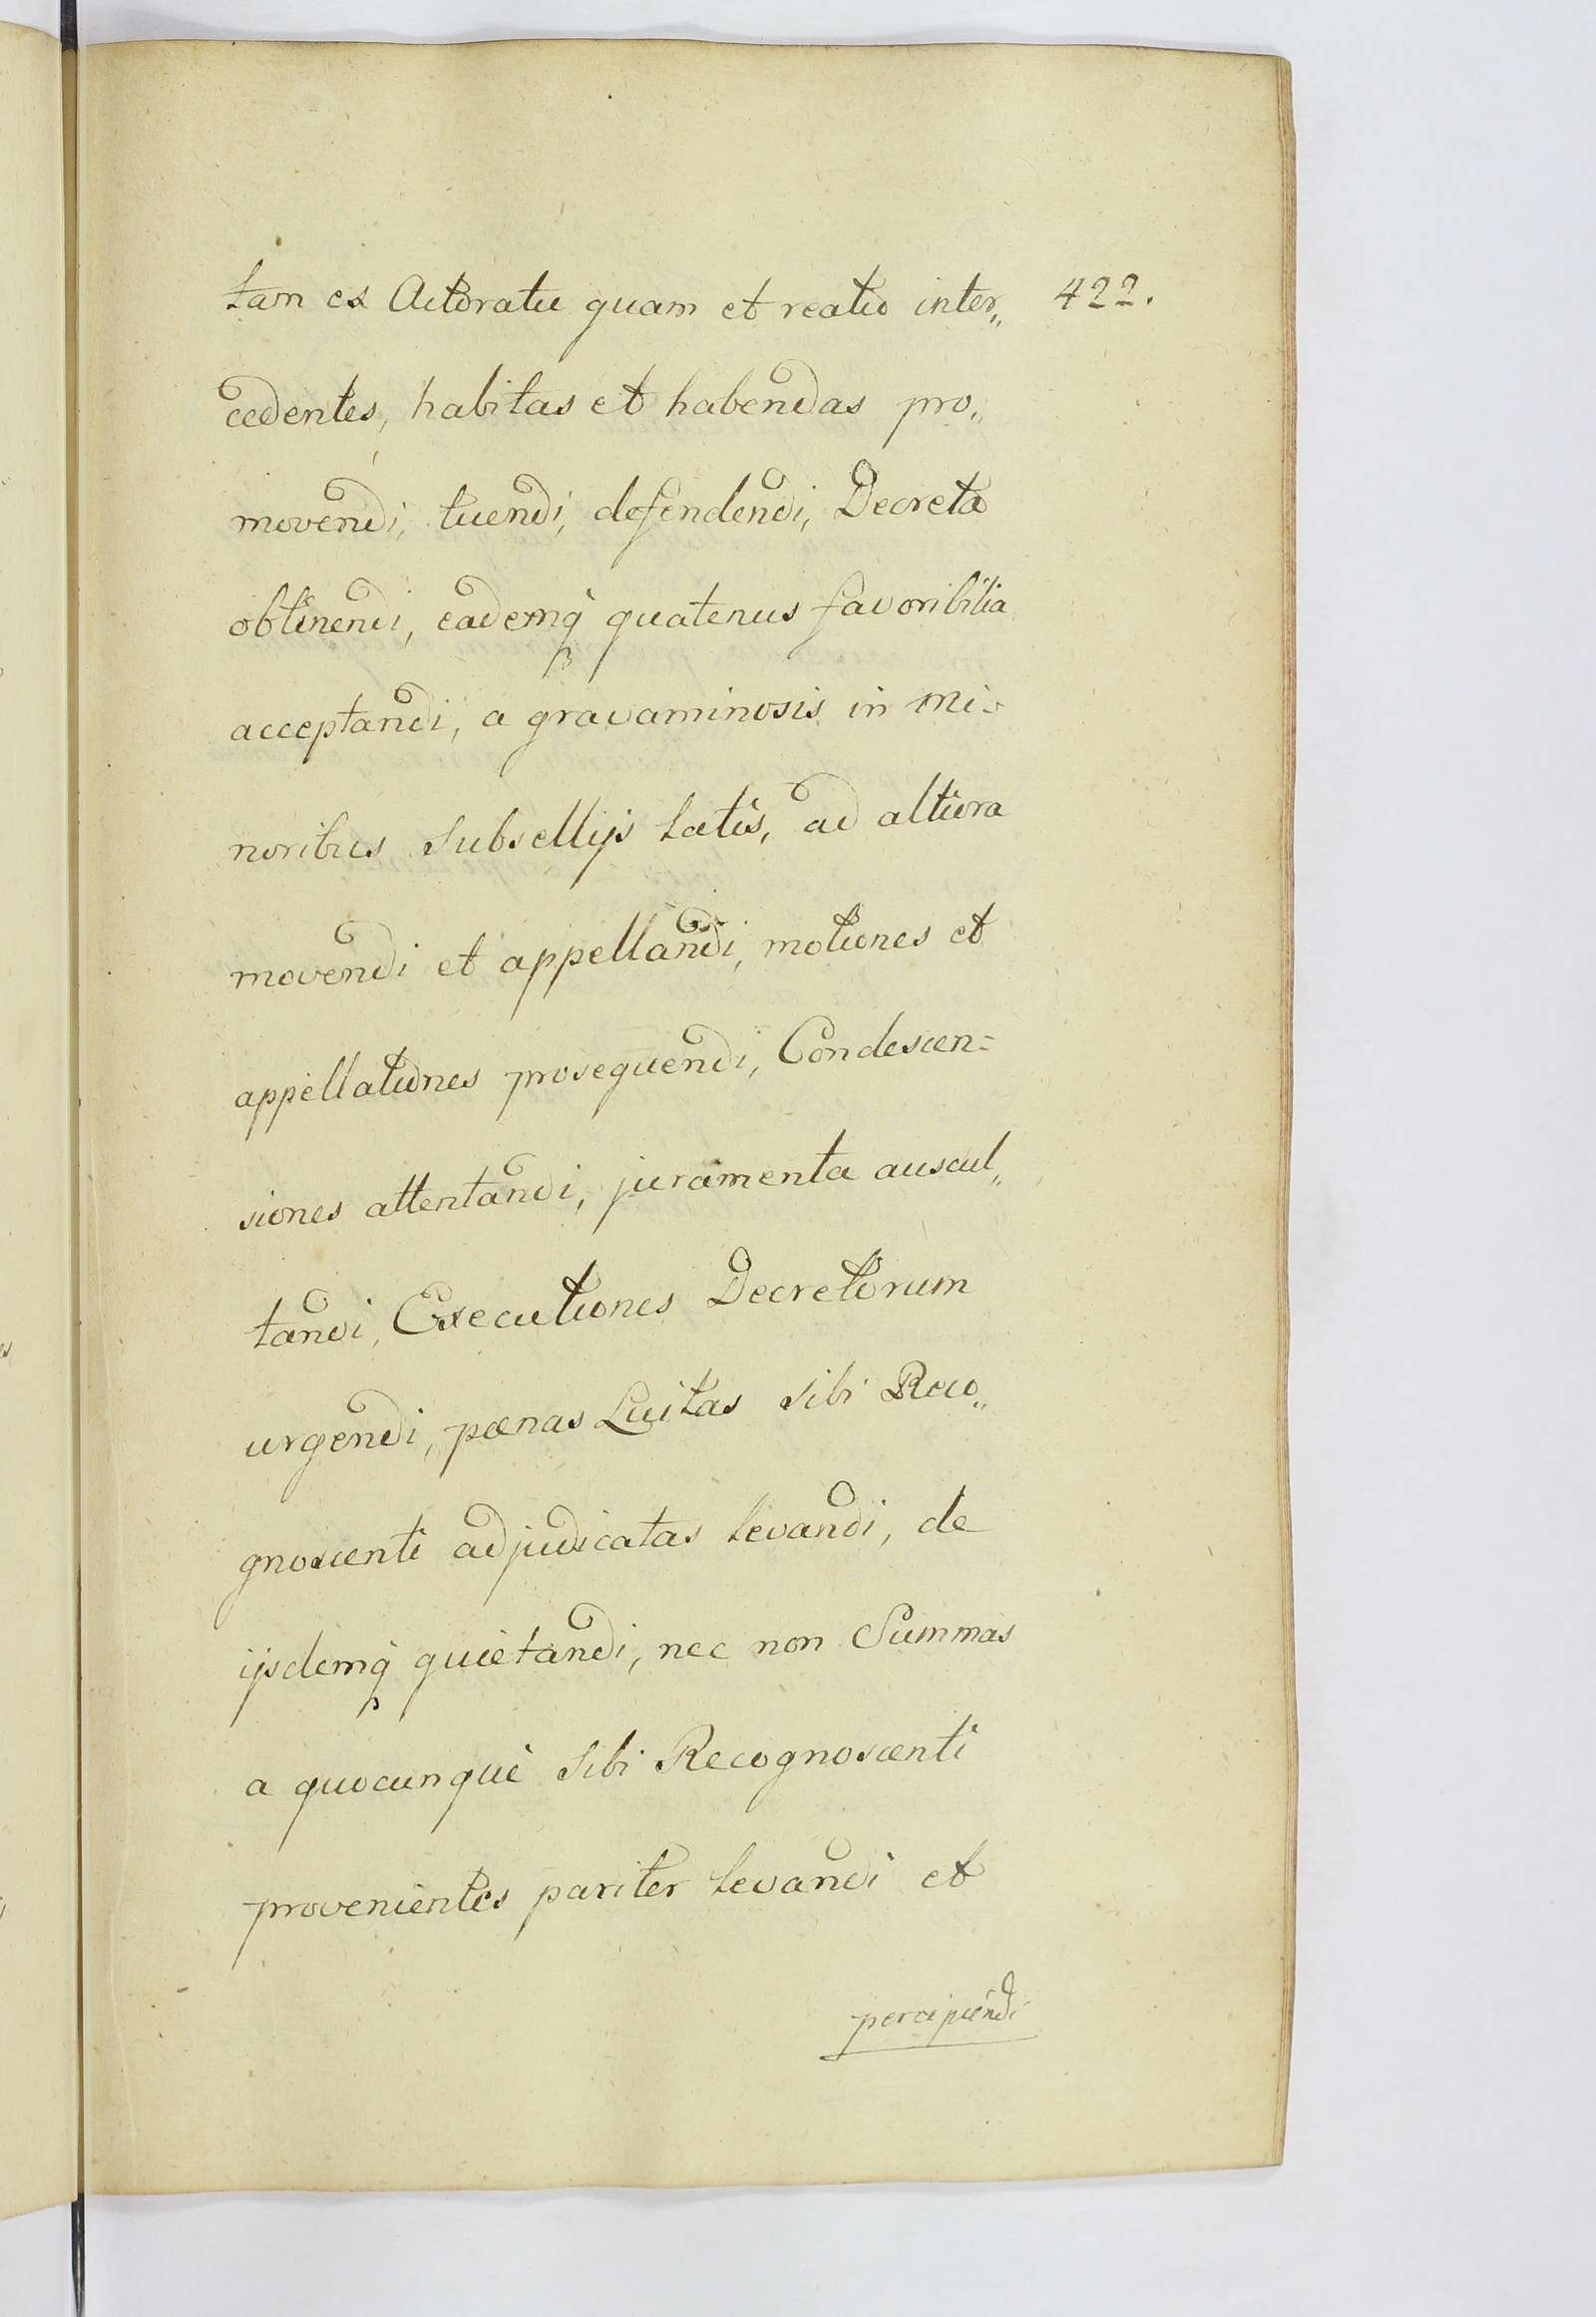 422.
tam ex Actoratu quam et reatio inter„
cedentes, habitas et habendas pro„
movendi, tuendi, defendendi, Decreta
obtinendi, eademq̀ quatenus favoribilia
acceptandi, a gravaminosis in mi-
noribus Subsellijs latis, ad altiora
movendi et appellandi, motiones et
appellationes prosequendi, Condescen=
siones attentandi, juramenta auscul„
tandi, Executiones Decretorum
urgendi, pœnas Luitas Sibi Reco„
gnoscenti adjudicatas levandi, de
ijsdemq̀ quietandi, nec non Summas
a quocunquè Sibi Recognoscenti
provenientes pariter levandi et
percipiendi